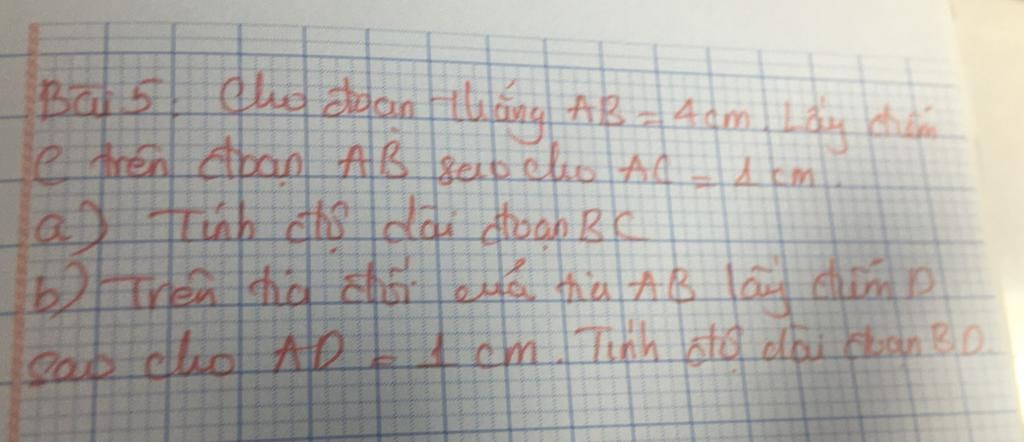 Bài 5. Cho đoạn thẳng AB = 4cm. Lấy điểm
C trên đoạn AB sao cho AC = 1 cm.
a) Tính độ dài đoạn BC
b) Trên tia đối của tia AB lấy điểm D
sao cho AD = 1 cm. Tính độ dài đoạn BD.